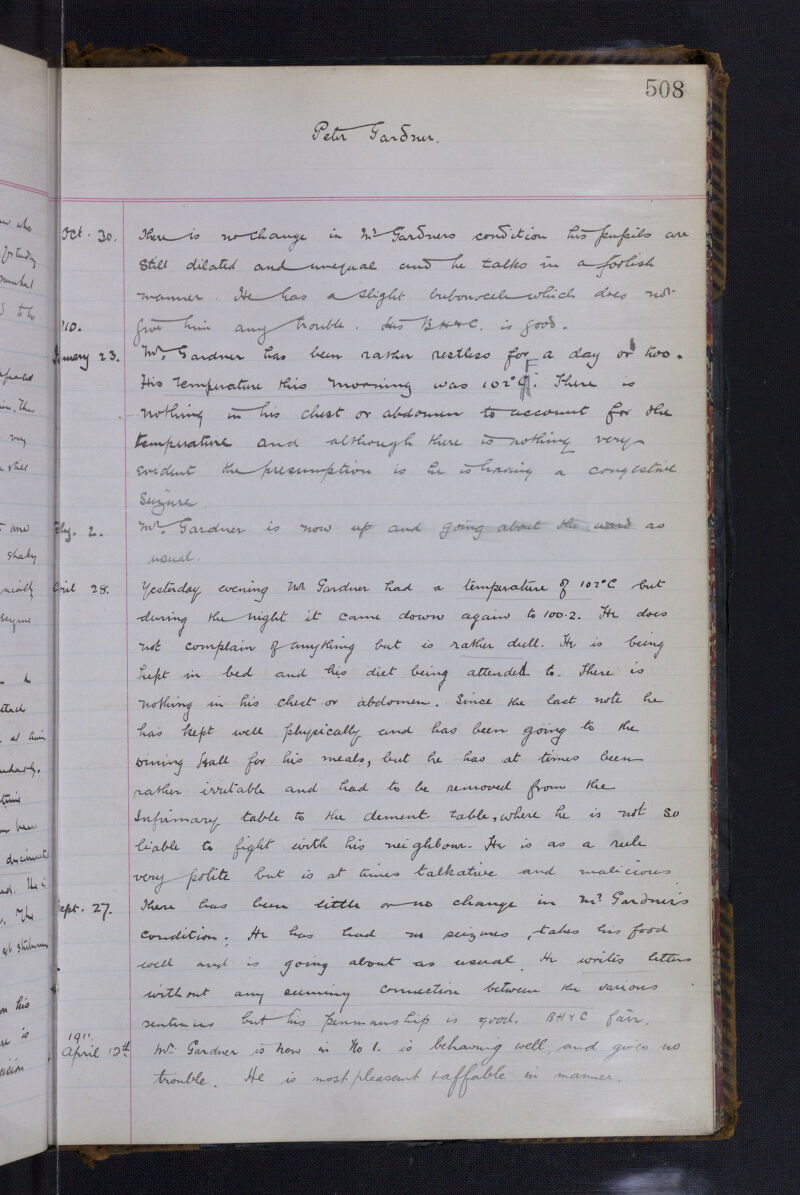 508
Peter Gardner.
Oct. 30. There is no change in Mr Gardners condition his pupils are
still dilated and unequal and he talks in a foolish
manner. He has a slight bubonocele which does not
1910. give him any trouble. His B H & C. is good.
January 23. Mr. Gardner has been rather restless for a day or two.
His temperature this morning was 102° There is
nothing in his chest or abdomen to account for the
temperature and although there is nothing very
evident the presumption is he is having a congestive
Seizure.
Feby. 2. Mr. Gardner is now up and going about the ward as
usual.
April 28. Yesterday evening Mr Gardner had a temperature of 102°C but
during the night it came down again to 100.2. He does
not complain of anything but is rather dull. He is being
kept in bed and his diet being attended to. There is
nothing in his chest or abdomen. Since the last note he
has kept well physically and has been going to the
Dining Hall for his meals, but he has at times been
rather irritable and had to be removed from the
Infirmary table to the dement table, where he is not so
liable to fight with his neighbour. He is as a rule
very polite but is at times talkative and malicious
Sept. 27. There has been little or no change in Mr Gardner's
condition. He has had no seizures, takes his food
well and is going about as usual. He writes letters
without any seeming connection between the various
sentences but his penmanship is good. B H & C fair.
1911.
April 12th Mr. Gardner is now in No 1. is behaving well, and gives no
trouble. He is most pleasant & affable in manner.